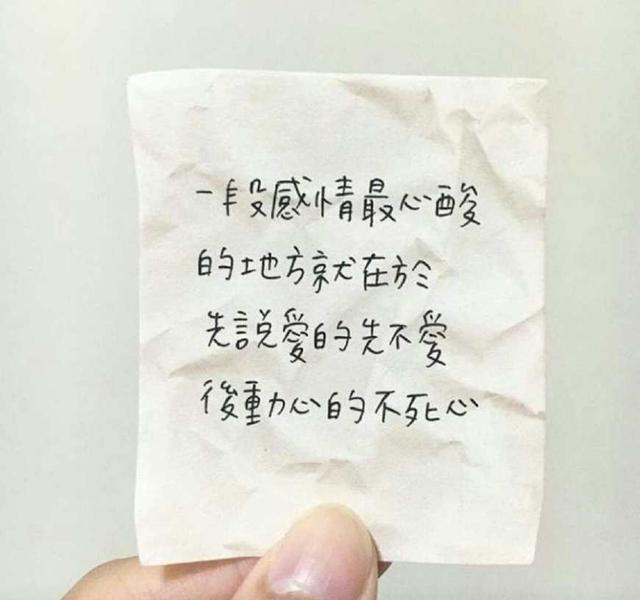 一段感情最心酸
的地方就在於
先說愛的先不愛
後動心的不死心